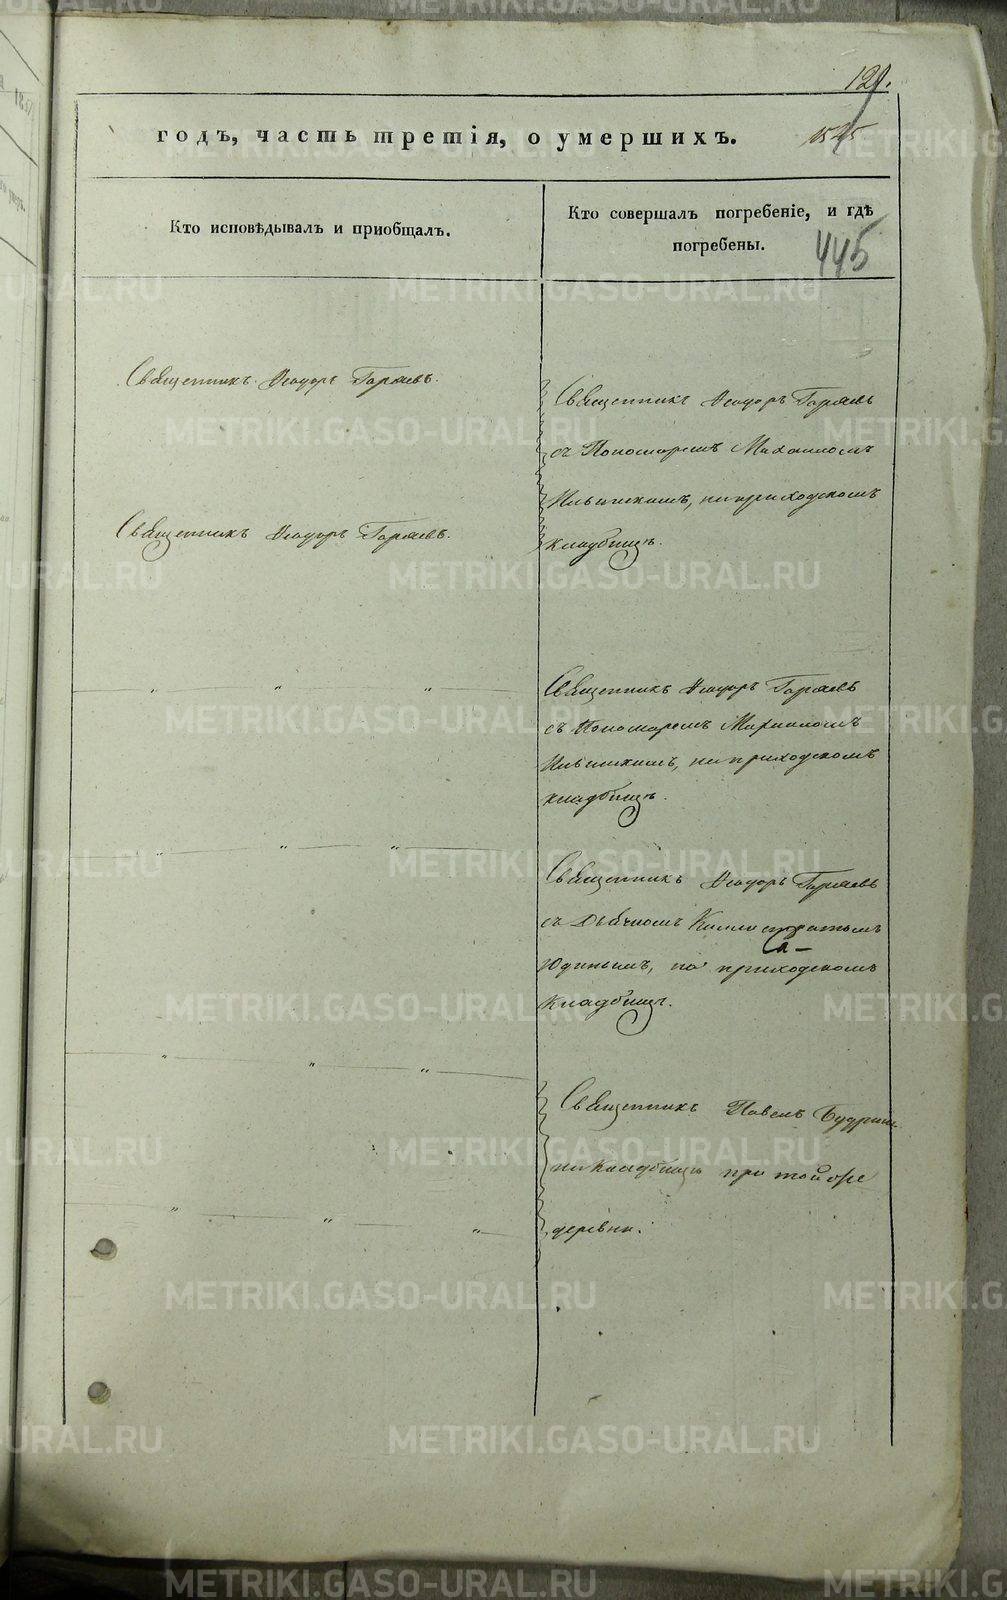 129.
годъ, часть третія, о умершихъ.
Кто исповѣдывалъ и пріобщалъ.
Кто совершалъ погребеніе, и гдѣ
погребены.
445
Священникъ Ѳеодоръ Гаряевъ.
Священникъ Ѳеодоръ Гаряевъ
съ Пономаремъ Михаиломъ
Ильинскимъ, на приходскомъ
кладбищѣ.
Священникъ Ѳеодоръ Гаряевъ.
" " "
Священникъ Ѳеодоръ Гаряевъ
съ Пономаремъ Михаиломъ
Ильинскимъ, на приходскомъ
кладбищѣ.
" " "
Священникъ Ѳеодоръ Гаряевъ
съ Дьячкомъ Каллистратомъ
Юдинымъ, на приходскомъ
кладбищѣ.
" " "
Священникъ Павелъ
на кладбищѣ при той же
деревни.
" " "
METRIKI.GASO-URAL.RU